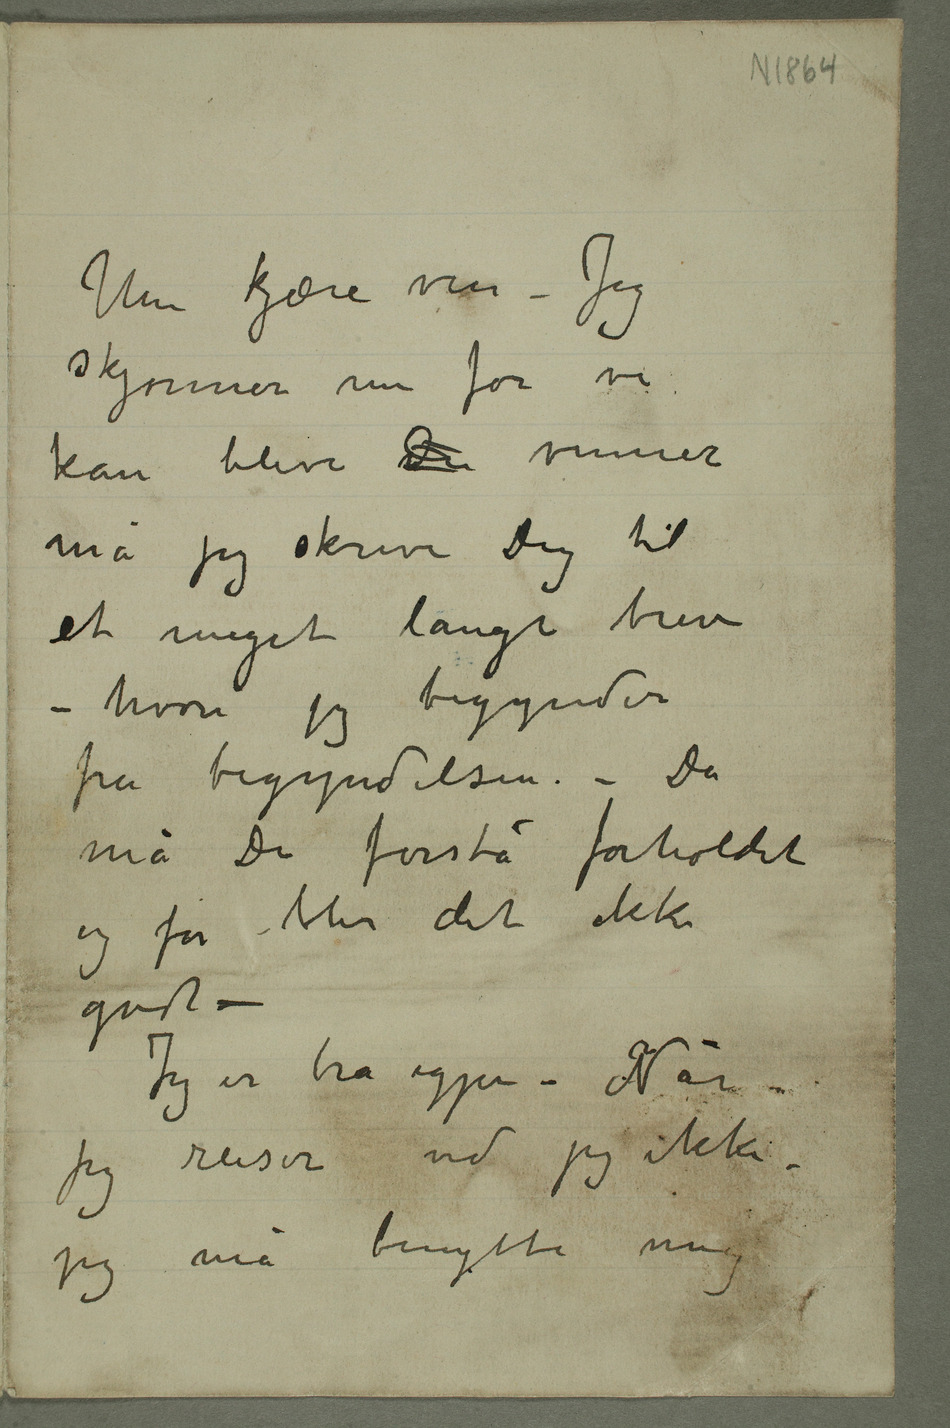 N1864
Min kjære ven – Jeg
skjønner nu før vi
kan blive De venner
må jeg skrive Dig til
et meget langt brev
– hvori jeg begynder
fra begyndelsen. – Da
må De forstå forholdet
og før blir det ikke
godt –
Jeg er bra igjen – Når –
jeg reiser ved jeg ikke –
jeg må benytte mig